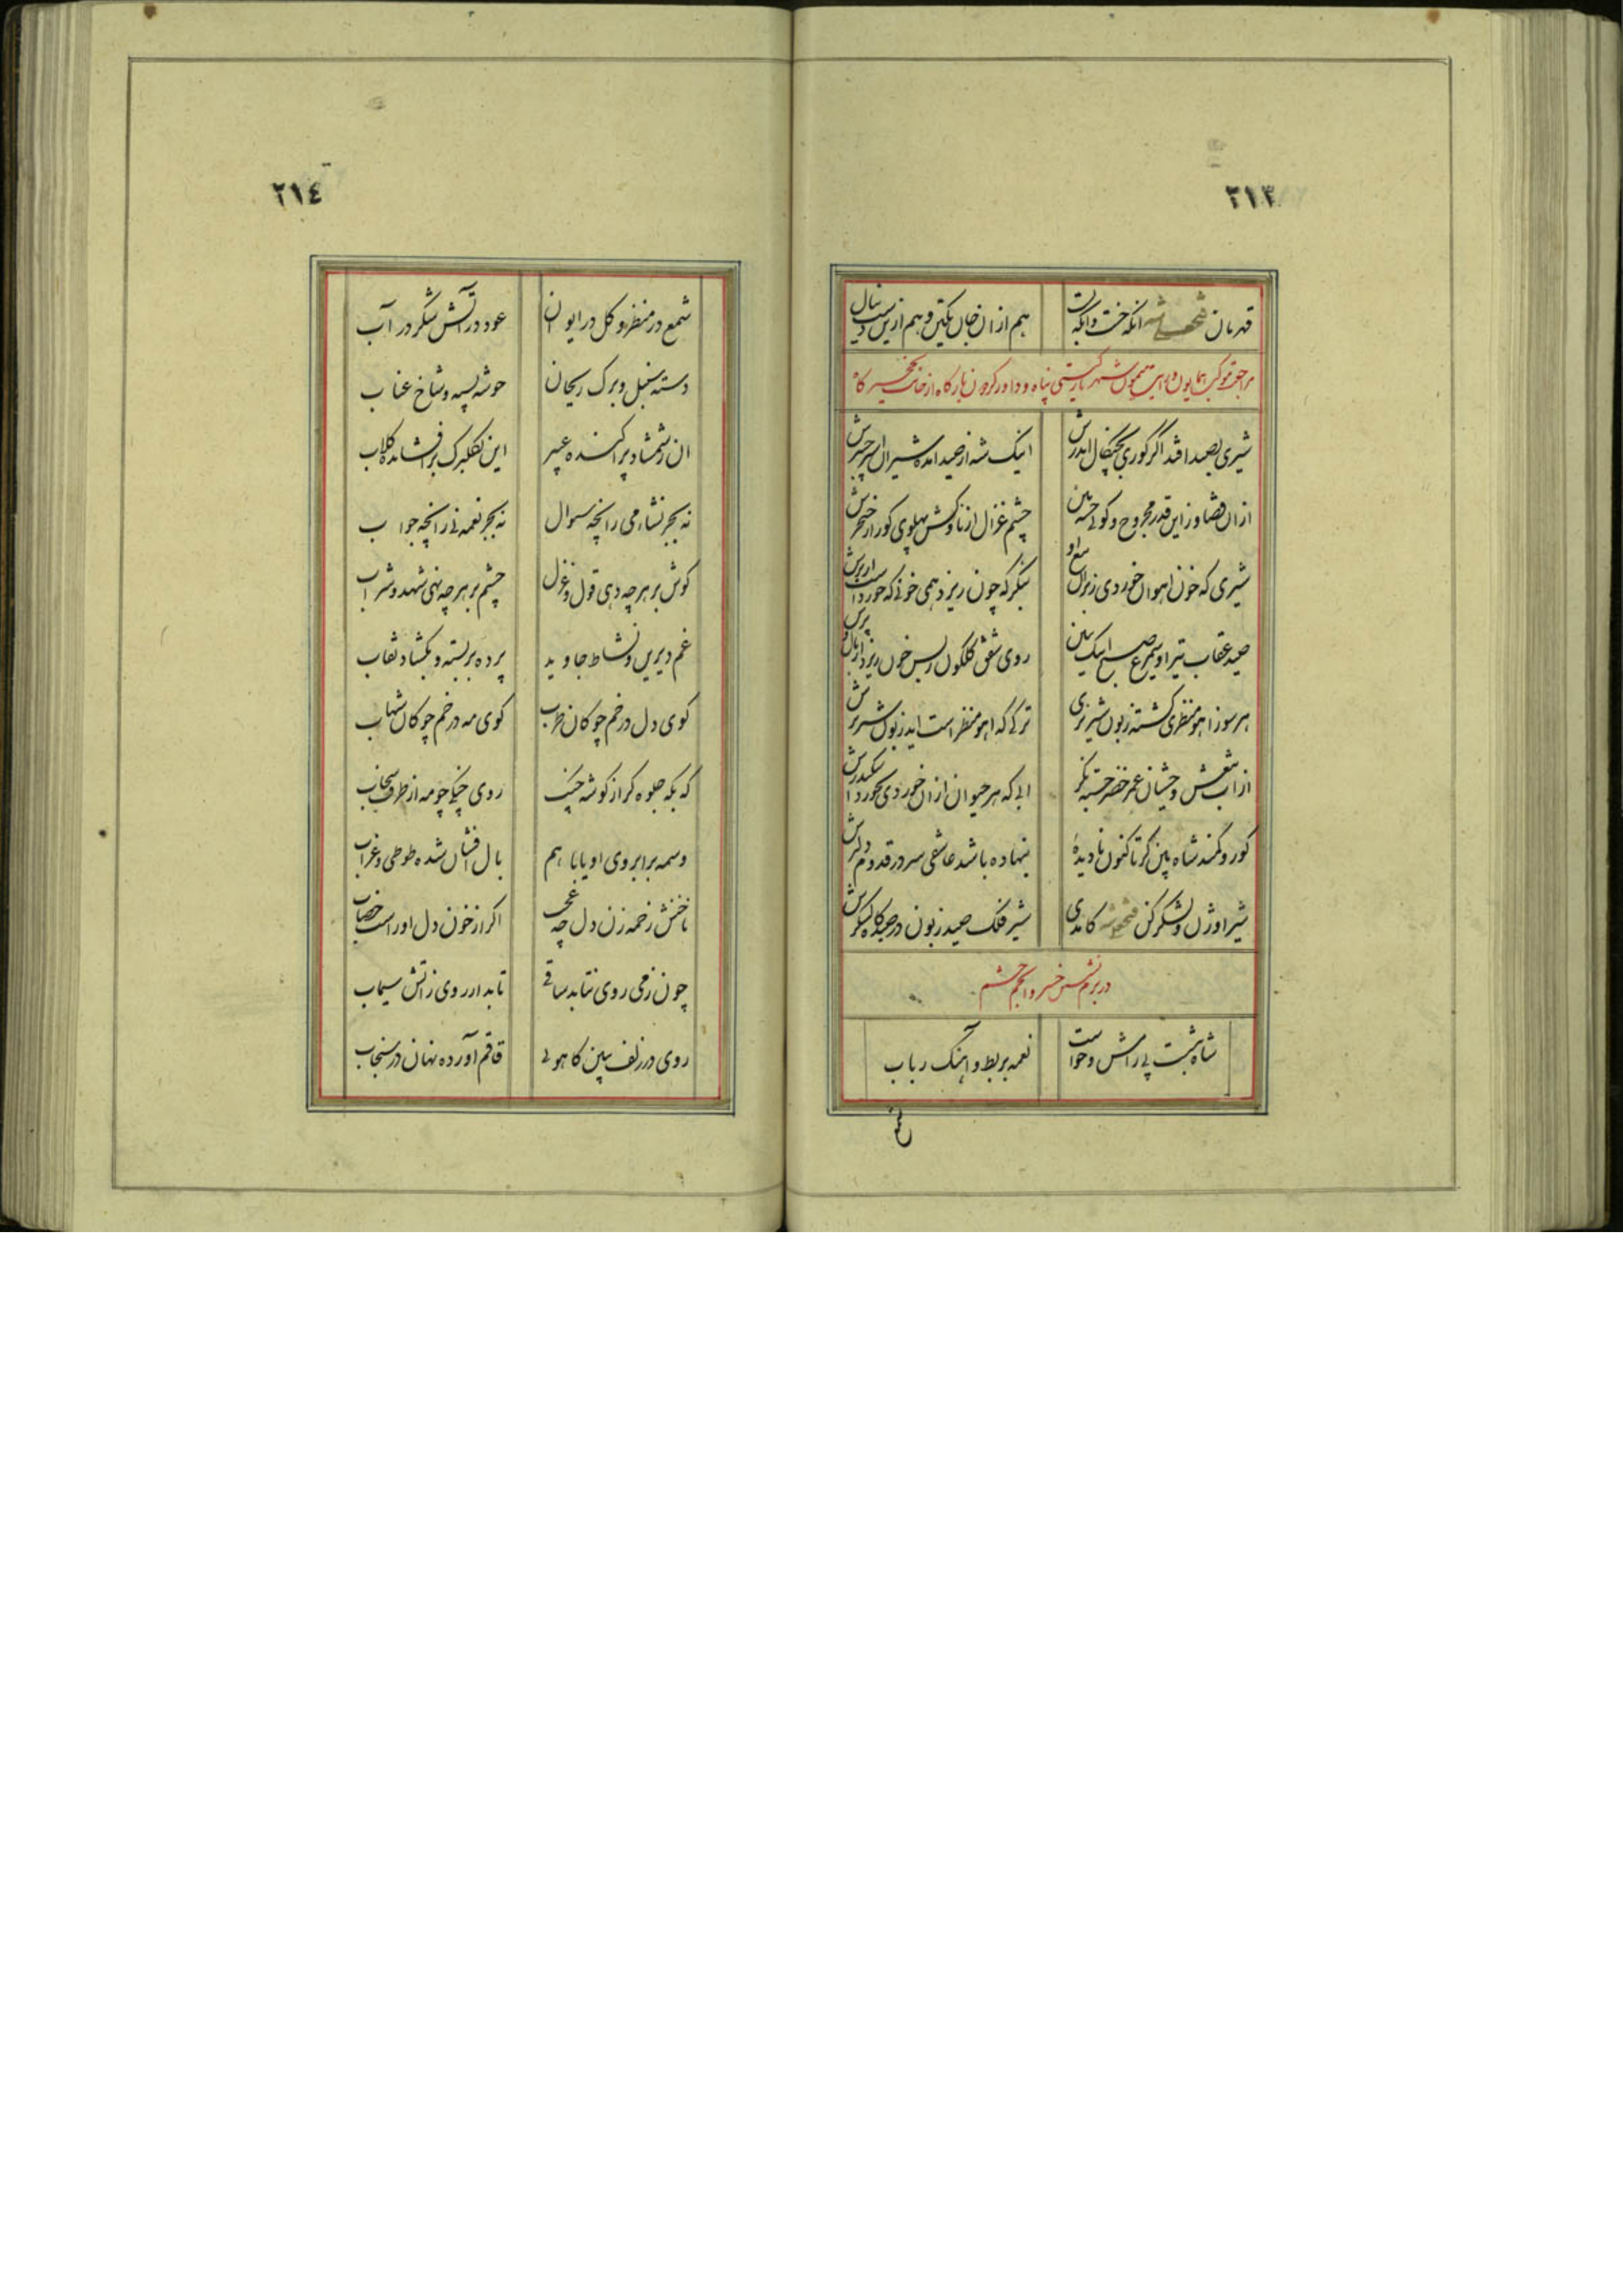 ٢١٣
قهرمان فتحعلیشه انکه
هم از ان خان تکین و هم ازین
مراجعت موکب همایون و رایت میمون شهریار کیتی پناه و داور کردون بارکاه از
شیری بصید افتد اگر کوری
اینک شه از صید امده شیران
ازان قضا و زاین قدر مجروح و کوئی
چشم غزال از ناوکش پهلوی کور از خنجرش
شیری که خون اهوان خوردی ز بزان
بنکر که چون ریزد همی خونی که خورد است
صید عقاب تیر او سیمرغ صبح اینک ببین
روی شفق کلکون ز بس خون ریزد از بال و پرش
هر سو ز اهو منظری کشته زبون شیر نری
ترکی که اهو منظر است اید زبون
از اب تیغش وحشیان عمر خضر جسته نکر
ابی که هر حیوان ازان خوردی نخورد اسکندرش
کور و کمند شاه بین کر تا کنون نادیدهٔ
بنهاده باشد عاشقی سر در قدوم دلبرش
شیر اوژن و لشکر کش فتحعلیشه کامدی
شیر فلک صید زبون در صیدکاه لشکرش
در بزم خسرو انجم حشم
شاه بنشست پی رامش و خواست
نغمه بربط و اهنک رباب
شمع
٢١٤
شمع در منظر و کل در ایوان
عود در آتش شکر در آب
دسته سنبل و برک ریحان
خوشه پسته و شاخ عناب
ان ز شمشاد پراکنده عبیر
این ز کلبرک برافشانده کلاب
نه بجز نشاء می را نچه سوال
نه بجز نغمه نی را نچه جواب
کوش بر هر چه دهی قول و غزل
چشم بر هر چه نهی شهد و شراب
غم دیرین و نشاط جاوید
پرده بربسته و بکشاد نقاب
کوی دل در خم چوکان طرب
کوی مه در خم چوکان شهاب
که بکه جلوه کر از کوشه چنک
روی چنکی چو مه از طرف سحاب
وسمه بر ابروی او یا با هم
بال افشان شده طوطی و غراب
ناخنش زخمه زن دل چه عجب
اکر از خون دل او راست خضاب
چون ز می روی نتابد ساقی
تابد ار روی ز اتش سیماب
روی در زلف ببین کاهوئی
قاقم آورده نهان در سنجاب